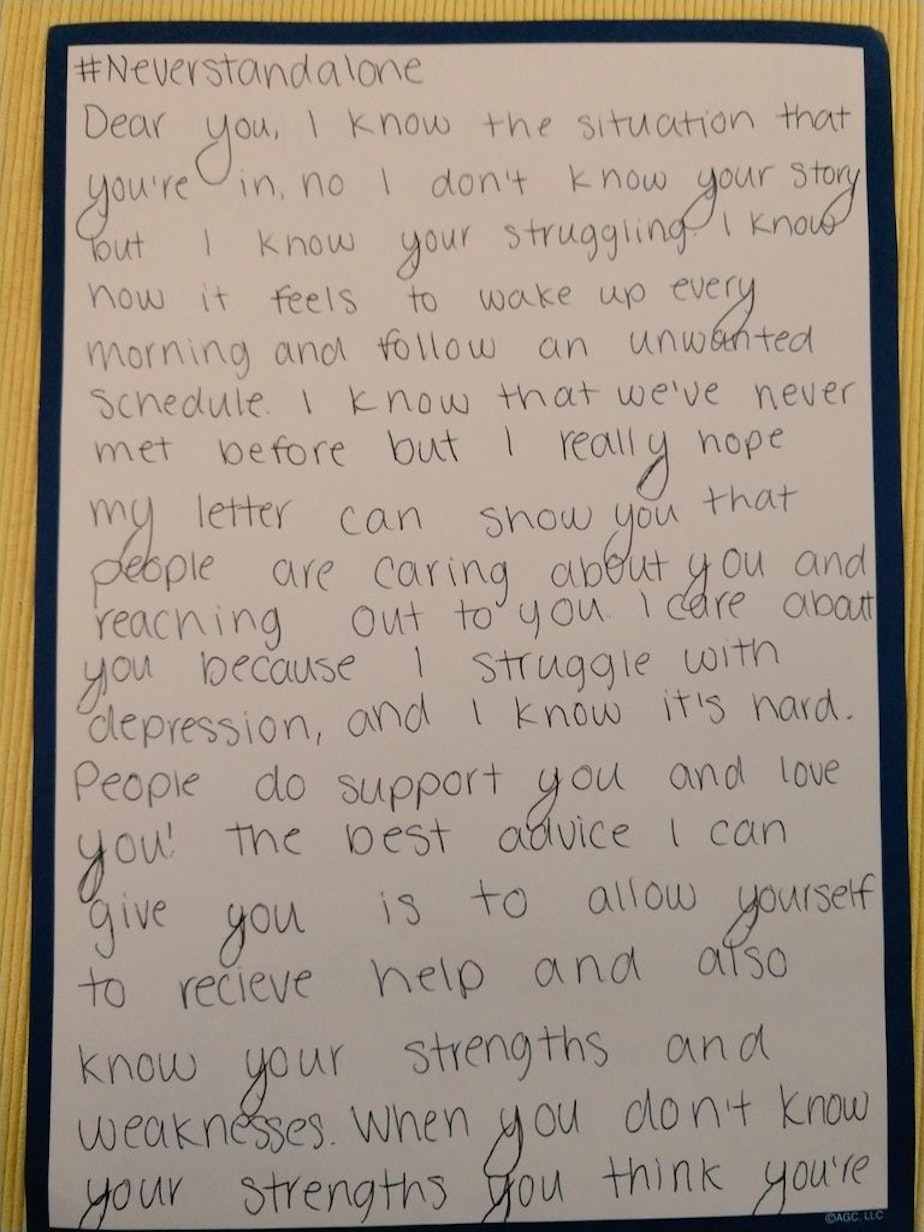 #Neverstandalone
Dear you, I know the situation that
you're in, no I don't know your story
but I know your struggling. I know
how it feels to wake up every
morning and follow an unwanted
schedule. I know that we've never
met before but I really hope
my letter can show you that
people are caring about you and
reaching out to you. I care about
you because I struggle with
depression, and I know it's hard.
People do support you and love
you! The best advice I can
give you is to allow yourself
to recieve help and also
know your strengths and
weaknesses. When you don't know
your strengths you think you're
©AGC, LLC